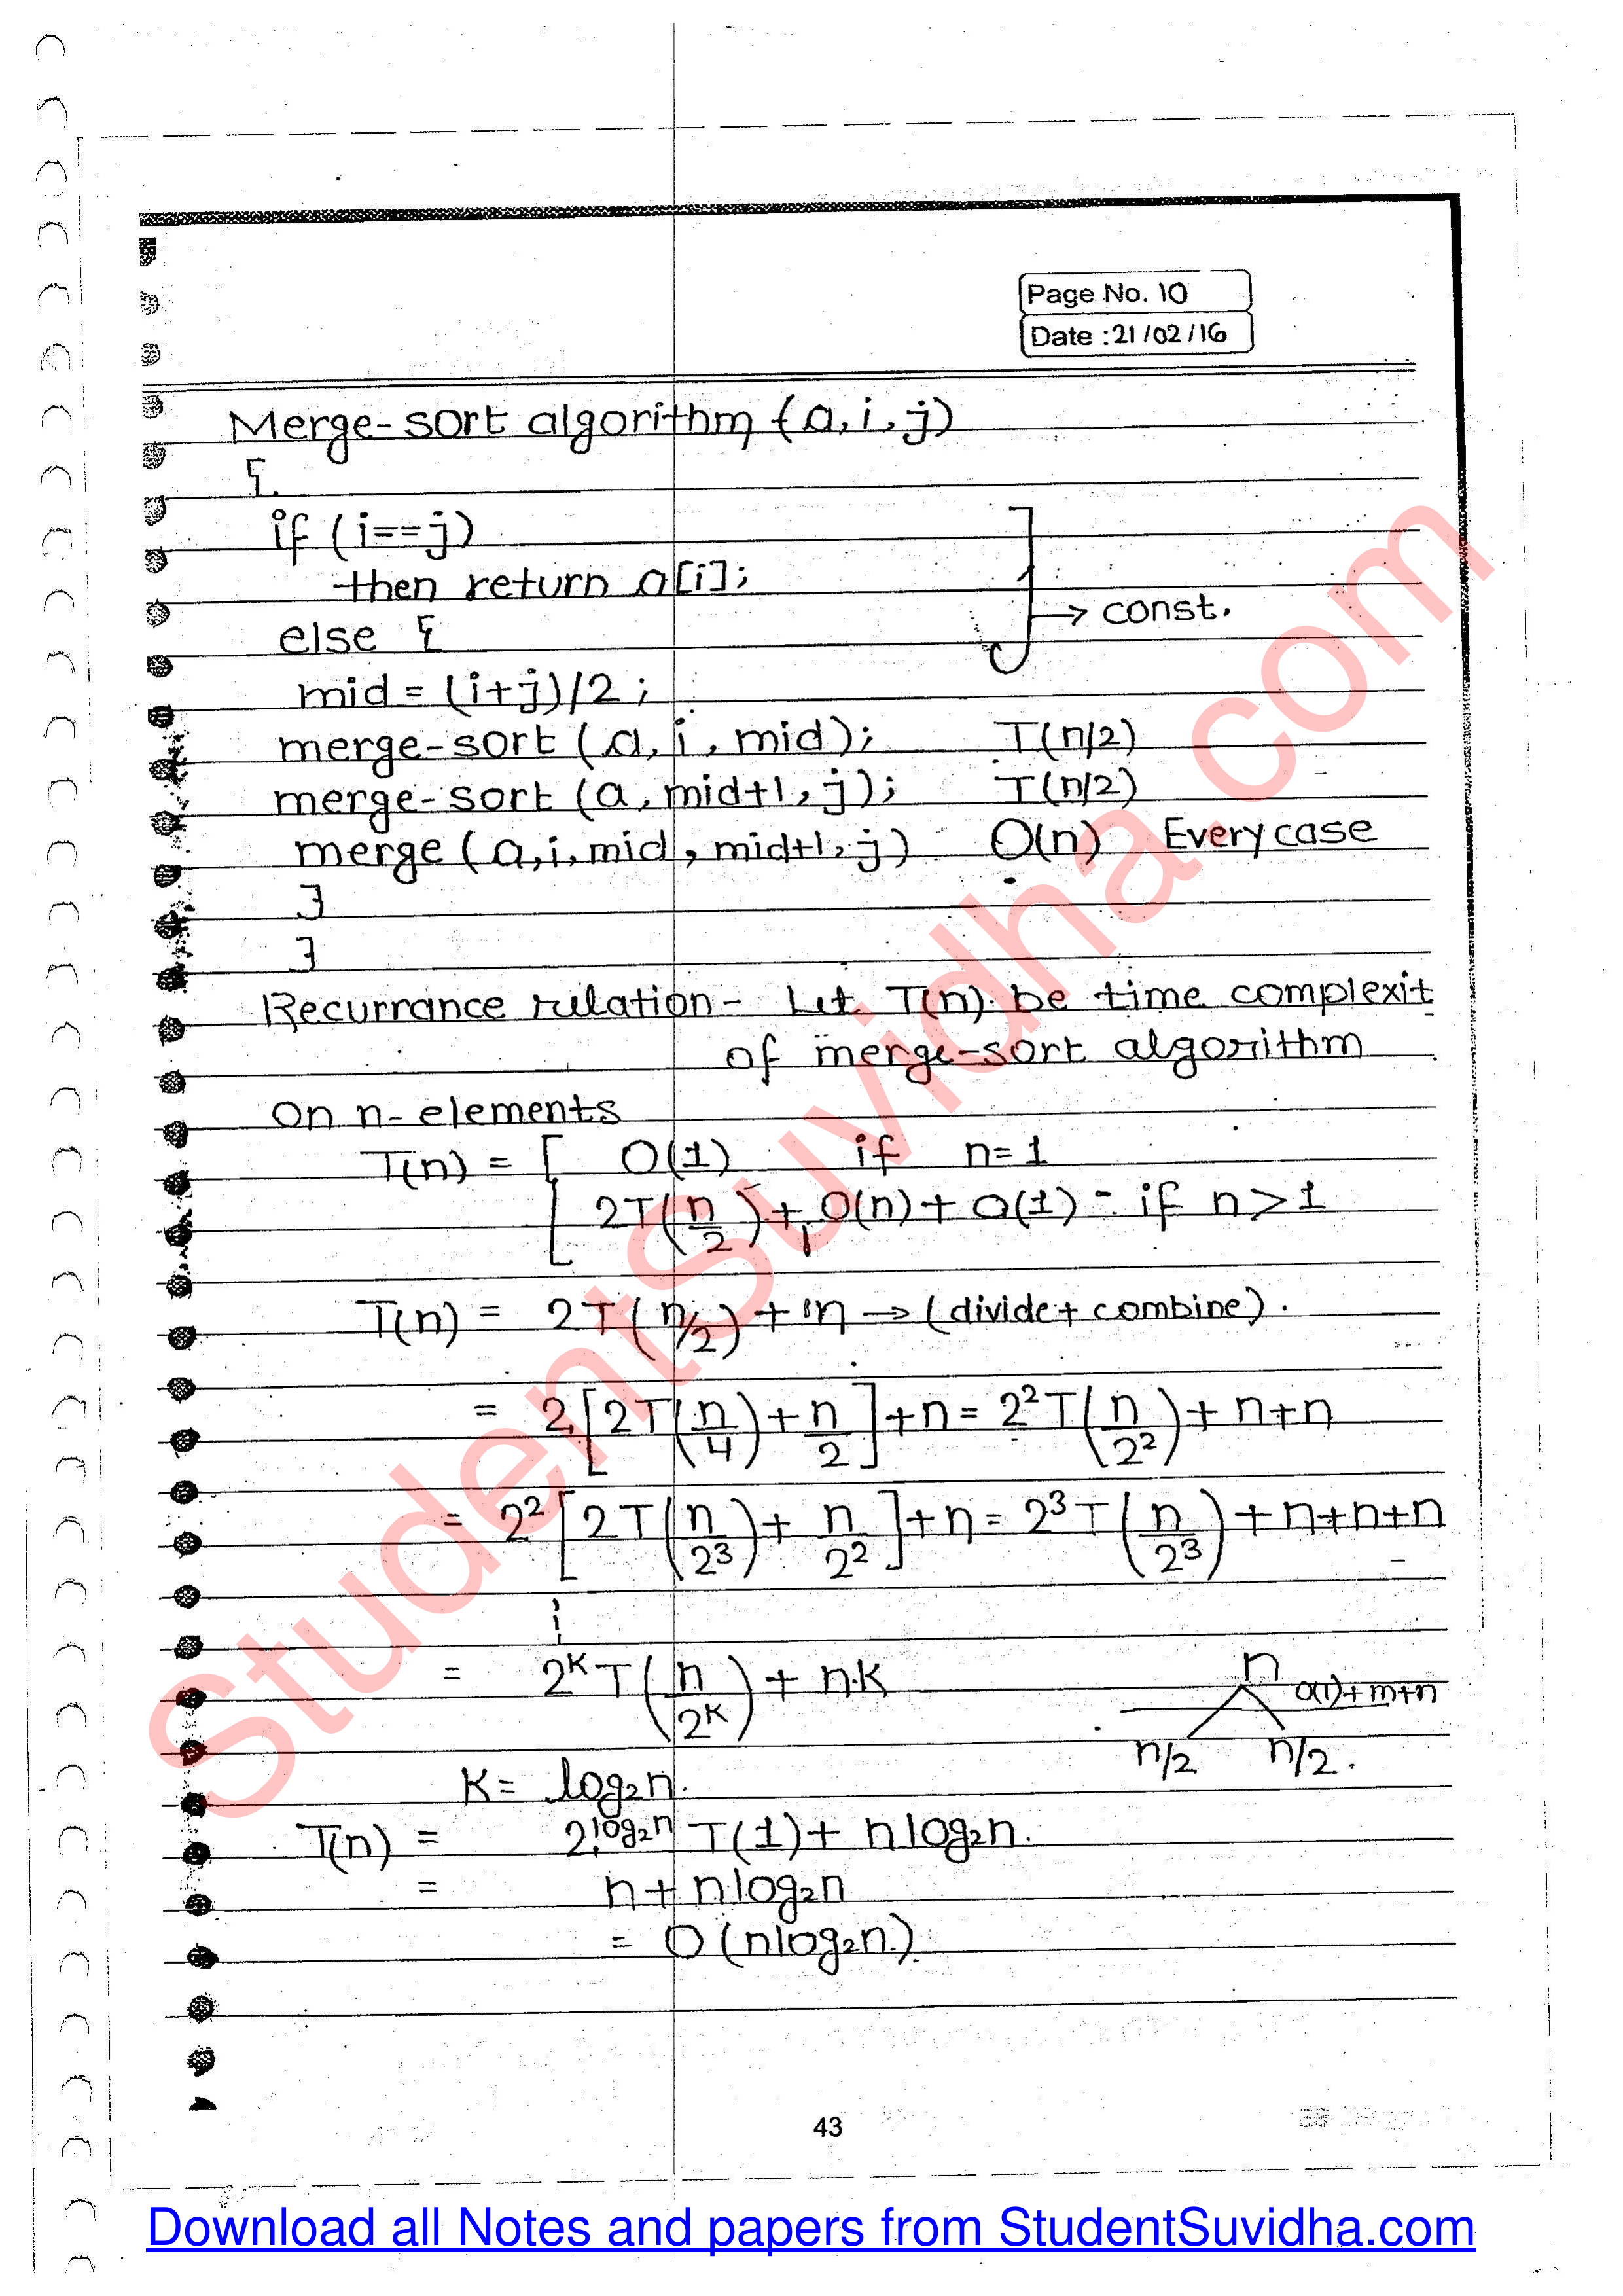 Page No. 10
Date : 21/02/16
Merge-sort algorithm (a, i, j)
{
if (i==j)
then return a[i];
else {
→ const.
mid = (i+j)/2;
merge-sort (a, i, mid); T(n/2)
merge-sort (a, mid+1, j); T(n/2)
merge (a, i, mid, mid+1, j) O(n) Every case
}
}
Recurrance relation - Let T(n) be time complexit
of merge-sort algorithm
on n-elements
T(n) = [ O(1) if n=1
[ 2T(n/2) + O(n) + O(1) - if n>1
T(n) = 2T(n/2) + n → (divide + combine).
= 2[2T(n/4) + n/2] + n = 2²T(n/2²) + n+n
= 2²[2T(n/2³) + n/2²] + n = 2³T(n/2³) + n+n+n
= 2^K T(n/2^K) + n.K
n
O(1)+m+n
n/2 n/2.
K = log₂n.
T(n) = 2^log₂n T(1) + nlog₂n.
= n + nlog₂n
= O(nlog₂n.)
43
StudentSuvidha.com
Download all Notes and papers from StudentSuvidha.com